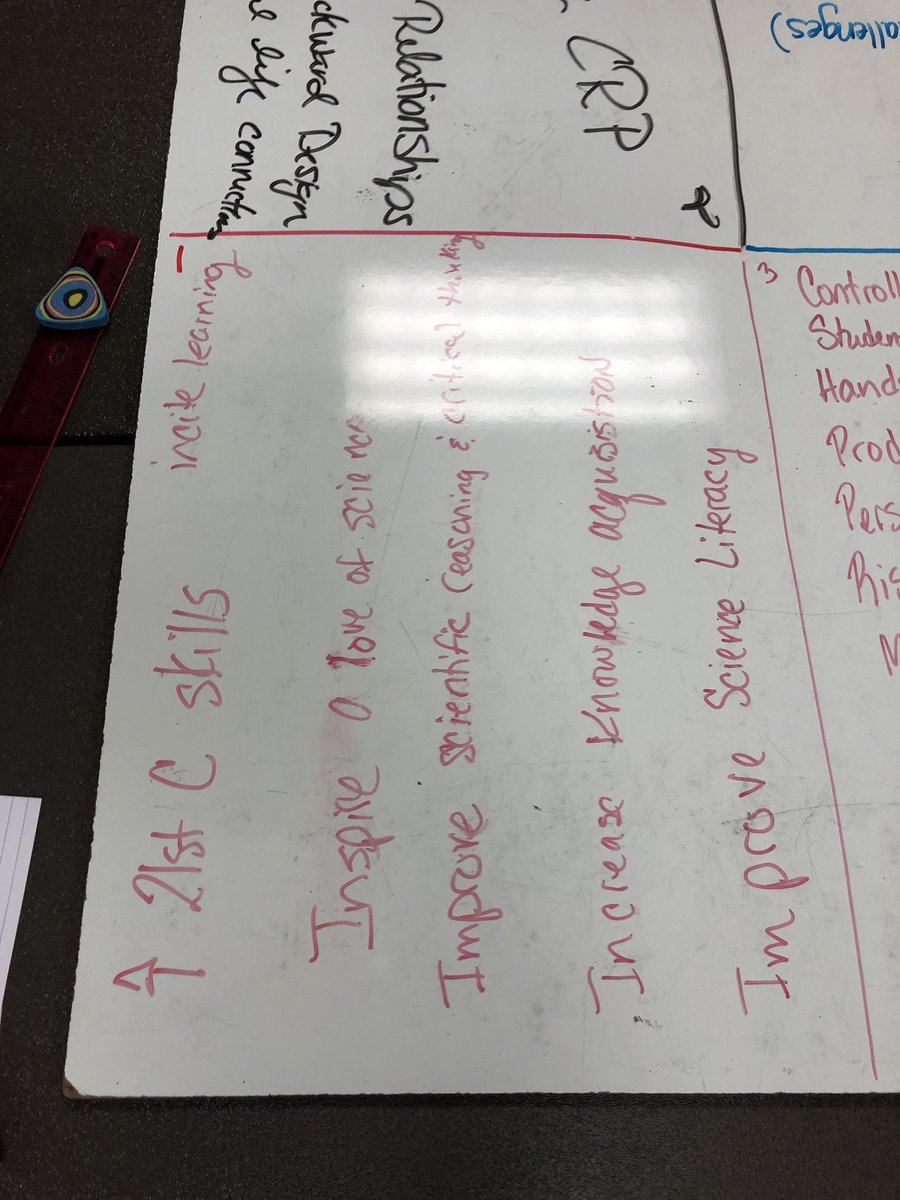 ↑ 21st C skills incite learning
Inspire a love of science
Improve scientific reasoning & critical thinking
Increase Knowledge acqusistion
Improve Science Literacy
CRP
&
Relationships
ckward Design
life connections
allenges)
3
Controll
Studen
Hands
Prod
Pers
Ris